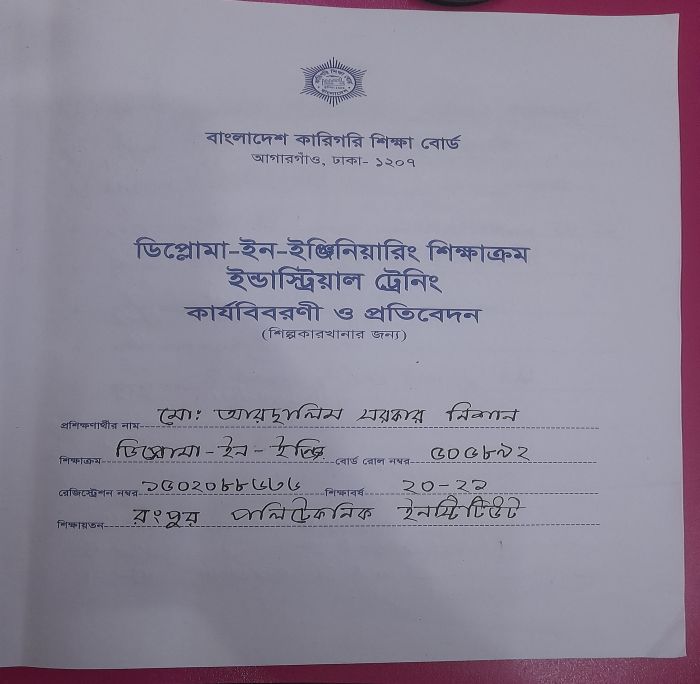 বাংলাদেশ কারিগরি শিক্ষা বোর্ড
আগারগাঁও, ঢাকা- ১২০৭
ডিপ্লোমা-ইন-ইঞ্জিনিয়ারিং শিক্ষাক্রম
ইন্ডাস্ট্রিয়াল ট্রেনিং
কার্যবিবরণী ও প্রতিবেদন
(শিল্পকারখানার জন্য)
প্রশিক্ষণার্থীর নাম মো: আরছালিম সরকার নিশান
শিক্ষাক্রম ডিপ্লোমা-ইন-ইঞ্জি বোর্ড রোল নম্বর ৫০৫৮৯২
রেজিস্ট্রেশন নম্বর শিক্ষাবর্ষ ২০-২১
শিক্ষায়তন রংপুর পলিটেকনিক ইনস্টিটিউট